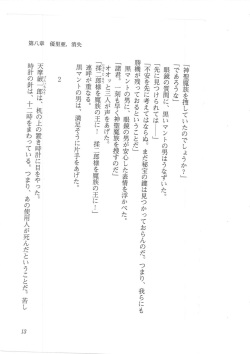 第八章　優聖祭、消失
「神聖魔族を捜していたのでしょうか?」
「であろうな」
眼鏡の質問に、黒いマントの男はうなずいた。
「先に見つけられては――」
「不安を先に考えてはならぬ。まだ秘宝の鍵は見つかっておらんのだ。つまり、我らにも
勝機が残っているということだ」
黒マントの男に、眼鏡の男が安心した表情を浮かべた。
「諸君、一刻も早く神聖魔族を捜すのだ」
オオッと三人が声をあげた。
「揉二郎様を魔族の王に!　揉二郎様を魔族の王に!」
連呼が重なる。
黒マントの男は、満足そうに片手をあげた。
2
天摩継一郎は、机の上の置き時計に目をやった。
時計の針は、十二時をまわっている。つまり、あの使用人が死んだということだ。苦し
13